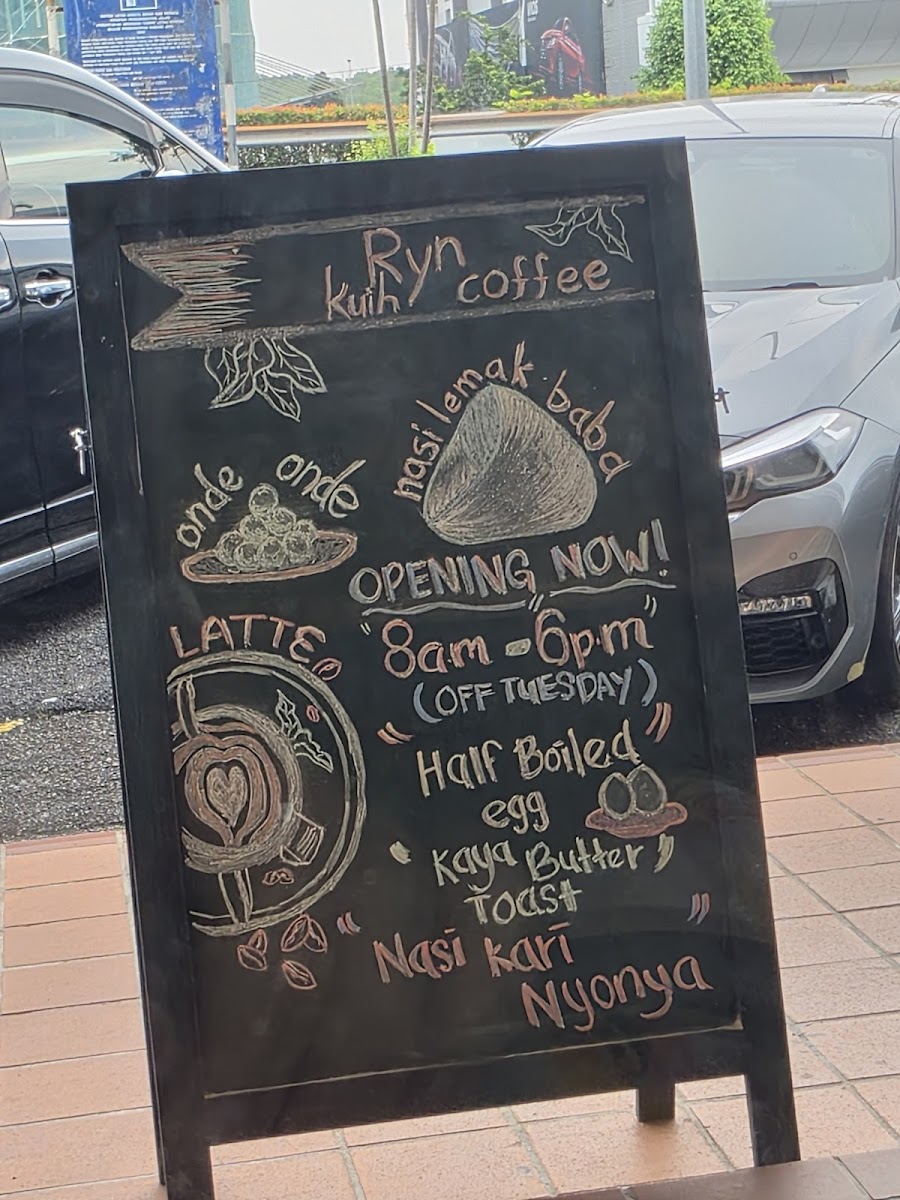 Ryn
kuih coffee
nasi lemak baba
onde onde
OPENING NOW!
LATTE
"8am - 6pm"
(OFF TUESDAY)
"Half Boiled"
egg
"Kaya Butter"
Toast
"Nasi Kari"
Nyonya